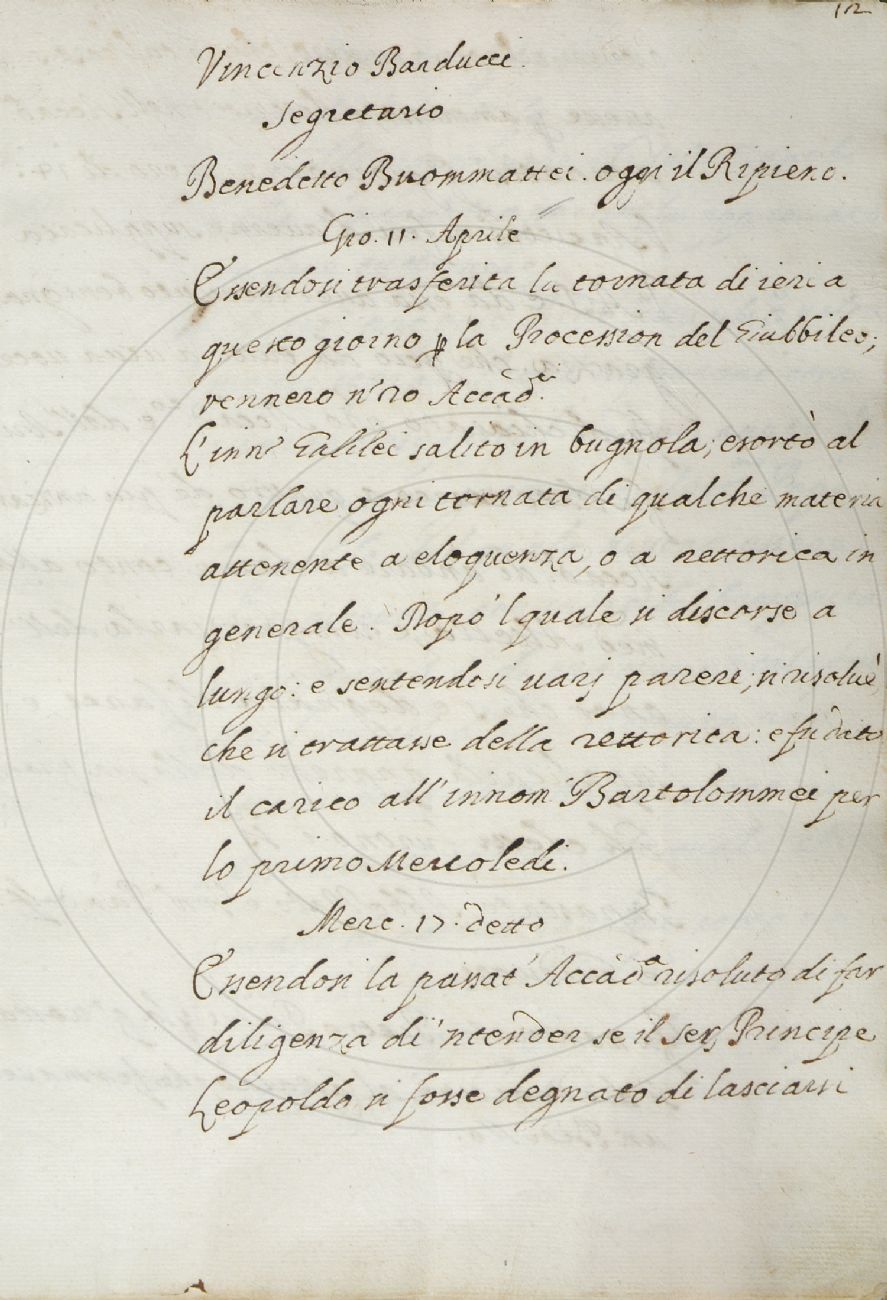 112
Vincenzio Barducci.
Segretario
Benedetto Buommattei. oggi il Ripieno.
Gio. 11. Aprile
Essendosi trasferita la tornata di ieri a
questo giorno ꝑ la Procession del Giubbileo;
vennero n.º 20 Accad.ci
L'inn.º Galilei salito in bugnola, esortò al
parlare ogni tornata di qualche materia
attenente a eloquenza, o a rettorica in
generale. Dopo 'l quale si discorse a
lungo: e sentendosi varj pareri, si risolvè
che si trattasse della rettorica: e fu dato
il carico all'innom.º Bartolommei per
lo primo Mercoledi.
Merc. 17. detto
Essendosi la passat' Accad.ª risoluto di far
diligenza di 'ntender se il Ser. Principe
Leopoldo si fosse degnato di lasciarsi